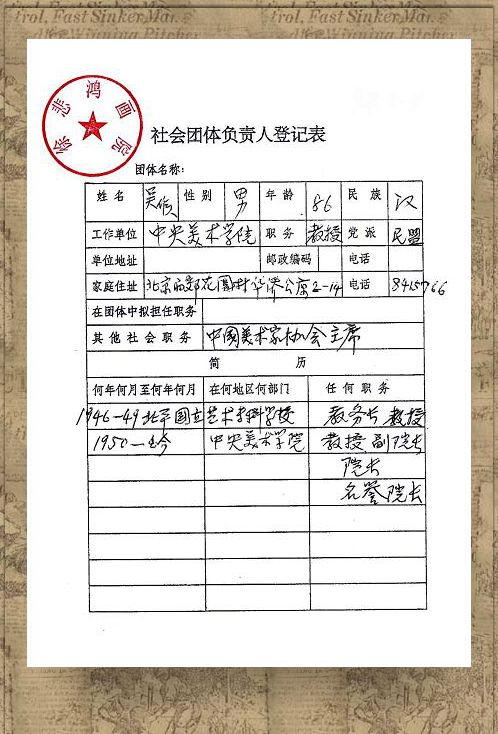 trol, Fast Sinker, Mar.
Winning Pitcher
徐悲鸿画院
社会团体负责人登记表
团体名称:
姓名 吴作人 性别 男 年龄 86 民族 汉
工作单位 中央美术学院 职务 教授 党派 民盟
单位地址 邮政编码 电话
家庭住址 北京西郊花园村华侨公寓2-14 电话 8415766
在团体中拟担任职务
其他社会职务 中国美术家协会主席
简历
何年何月至何年何月 在何地区何部门 任何职务
1946-49 北平国立艺术专科学校 教务长 教授
1950-至今 中央美术学院 教授 副院长
院长
名誉院长